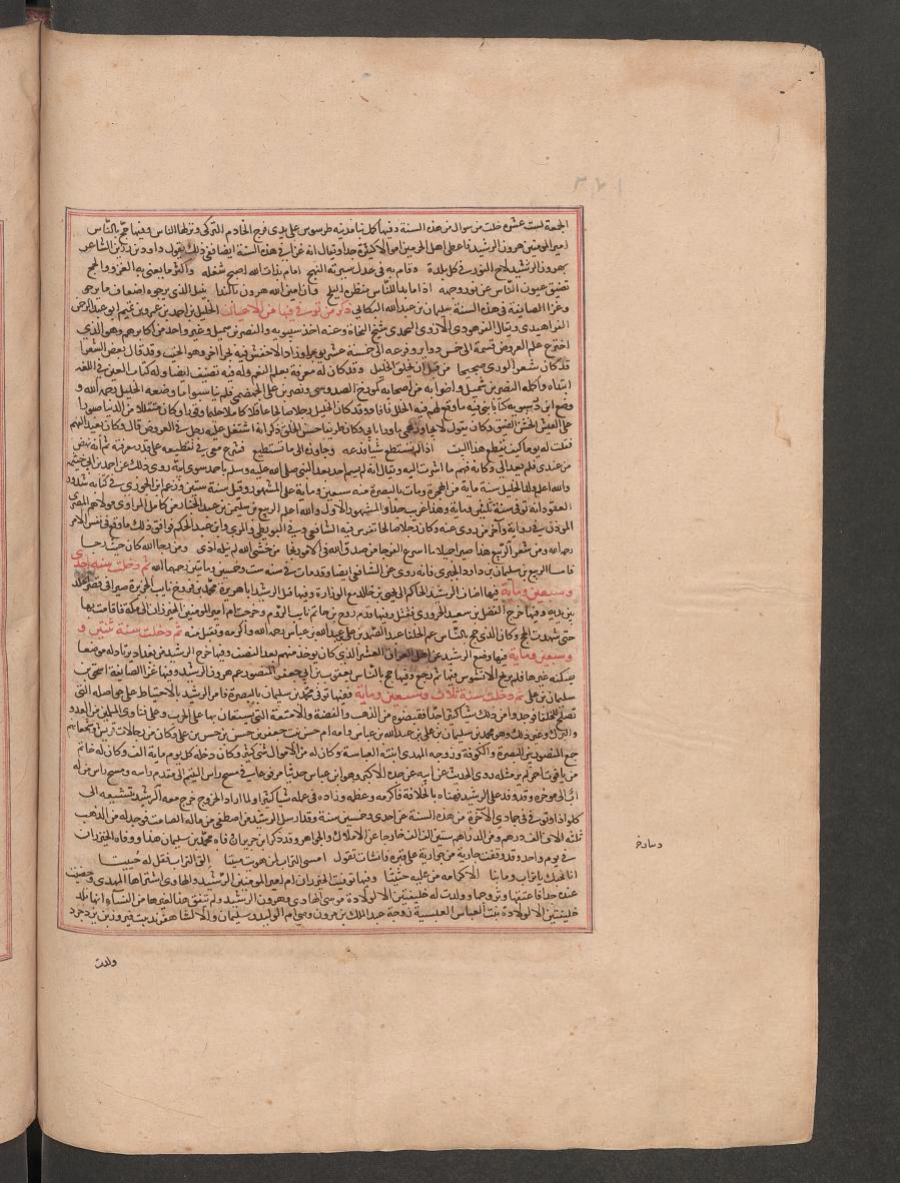 ٢٧١
الجمعة لست عشرة خلت من شوال من هذه السنة وفيها كمل بنا مدينة طرسوس على يدي فرج الخادم التركي ونزلها الناس وفيها حج بالناس
امير المومنين هرون الرشيد فاعطى اهل الحرمين اموالا كثيرة جدا ويقال انه غزا في هذه السنة ايضا ففي ذلك يقول داود بن رزين الشاعر
بهرون الرشيد لاح النور في كل بلدة وقام به في عدل سيرته النهج امام بذات الله اصبح شغله واكثر ما يعنى به الغزو والحج
تضيق عيون الناس عن نور وجهه اذا ما بدا للناس منظره البلج فان امين الله هرون ذا الندا ينيل الذي يرجوه اضعاف ما يرجى
وغزا الصايفة في هذه السنة سليمان بن عبد الله البكائي ذكر من توفي فيها من الاعيان الخليل بن احمد بن عمرو بن تميم ابو عبد الرحمن
الفراهيدي ويقال الفرهودي الازدي اليحمدي شيخ النحاة وعنه اخذ سيبويه والنضر بن شميل وغير واحد من اكابرهم وهو الذي
اخترع علم العروض قسمه الى خمس دواير وفرعه الى خمسة عشر بحرا وزاد الاخفش فيه بحرا اخر وهو الخبب وقد قال بعض الشعرا
قد كان شعر الورى صحيحا من قبل ان يخلق الخليل وقد كان له معرفة بعلم النغم وله فيه تصنيف ايضا وله كتاب العين في اللغه
ابتداه واكمله النضر بن شميل واضرابه من اصحابه كمورج السدوسي ونصر بن علي الجهضمي فلم يناسبوا ما وضعه الخليل رحمه الله و
وضع ابن درستويه كتابا بين فيه ما وقع لهم فيه الخلل فافاد وقد كان الخليل رجلا صالحا عاقلا كاملا حليما وقورا وكان متقللا من الدنيا صبورا
على العيش الخشن الضيق وكان يقول لا يجاوز همي ما ورا بابي وكان ظريفا حسن الخلق ذكر انه اشتغل عليه رجل في العروض قال وكان بعيد الفهم
فقلت له يوما كيف تقطع هذا البيت اذا لم تستطع شيئا فدعه وجاوزه الى ما تستطيع فشرع معي في تقطيعه على قدر معرفته ثم انه نهض
من عندي فلم يعد الي وكانه فهم ما اشرت اليه ويقال انه لم يسم احد بعد النبي صلى الله عليه وسلم باحمد سوى ابيه روي ذلك عن احمد بن ابي خيثمة
والله اعلم ولد الخليل سنة ماية من الهجرة ومات بالبصرة سنة سبعين وماية على المشهور وقيل سنة ستين وزعم ابن الجوزي في كتابه شذور
العقود انه توفي سنة ثلثين وماية وهذا غريب جدا والمشهور الاول والله اعلم الربيع بن سليمان بن عبد الجبار بن كامل المرادي مولاهم المصري
الموذن في رواية واخر من روى عنه وكان رجلا صالحا تفرس فيه الشافعي وفي البويطي والمزني وابن عبد الحكم فوافق ذلك ما وقع في نفس الامر
رحمه الله ومن شعر الربيع هذا صبرا جميلا ما اسرع الفرجا من صدق الله في الامور نجا من خشي الله لم ينله اذى ومن رجا الله كان حيث رجا
فاما الربيع بن سليمان بن داود الجيزي فانه روى عن الشافعي ايضا وقد مات في سنه ست وخمسين وماتين رحمهما الله ثم دخلت سنه احدى
وسبعين وماية فيها اضاف الرشيد الخاتم الى يحيى بن خالد مع الوزارة وفيها قتل الرشيد ابا هريرة محمد بن فروخ نايب الجزيرة صبرا في قصر الخلد
بين يديه وفيها خرج الفضل بن سعيد الحروري فقتل وفيها قدم روح بن حاتم نايب افريقية وخرجت ام امير المومنين الخيزران الى مكة فاقامت بها
حتى شهدت الحج وكان الذي حج بالناس عم الخلفا عبد الصمد بن علي بن عبد الله بن عباس رحمه الله واكرمه وتقبل منه ثم دخلت سنة ثنتين و
وسبعين وماية فيها وضع الرشيد عن اهل العراق العشر الذي كان يوخذ منهم بعد النصف وفيها خرج الرشيد من بغداد يرتاد له موضعا
يسكنه غيرها فلم يرج الا تشوش فيها ثم رجع وفيها حج بالناس يعقوب بن ابي جعفر المنصور عم هرون الرشيد وفيها غزا الصايفة اسحق بن
سليمان بن علي ثم دخلت سنة ثلاث وسبعين وماية ففيها توفي محمد بن سليمان بالبصرة فامر الرشيد بالاحتياط على حواصله التي
تصلح للخلفا فوجدوا من ذلك شيا كثيرا جدا فقبضوه من الذهب والفضة والامتعة التي يستعان بها على الحرب وعلى فتاوى المسلمين من العدو
والبرك وغير ذلك وهو محمد بن سليمان بن علي بن عبد الله بن عباس وامه ام حسن بنت جعفر بن حسن بن حسن بن علي وكان من رجالات قريش وشجعانهم
جمع المنصور بين البصرة والكوفة وزوجه المهدي ابنته العباسة وكان له من الاموال شي كثير وكان دخله كل يوم ماية الف وكان له خاتم
من ياقوت احمر لم ير مثله روى الحديث عن ابيه عن جده الاكبر وهو ابن عباس حديثا مرفوعا في مسح راس اليتيم الى مقدم راسه ومسح راس من له
اب الى موخره وقد وفد على الرشيد فهناه بالخلافة فاكرمه وعظمه وزاده في عمله شيا كثيرا ولما اراد الخروج خرج معه الرشيد يشيعه الى
كلواذا وتوفي في جمادى الآخرة من هذه السنة عن احدى وخمسين سنة وقد ارسل الرشيد من اصطفى من ماله الصامت فوجد له من الذهب
ثلثة الاف الف درهم ومن الدراهم ستين الف الف خارجا عن الاملاك والجواهر وقد ذكر ابن جرير ان وفاه محمد بن سليمان هذا ووفاه الخيزران
في يوم واحد وقد وقفت جارية من جواريه على قبره فانشات تقول امسى التراب لمن هويت مبيتا الق التراب فقل له حييتا
انا نحبك يا تراب وما بنا الا كرامة من عليه حثيتا وفيها توفيت الخيزران ام امير المومنين الرشيد والهادي اشتراها المهدي وحظيت
عنده جدا فاعتقها وتزوجها وولدت له خليفتين موسى الهادي وهرون الرشيد ولم يتفق هذا لغيرها من النساء
خليفتين الا ولادة بنت العباس العبسية زوجة عبد الملك بن مرون وهي ام الوليد وسليمان والا شاهفرند بنت فيروز بن يزدجرد
ولدت